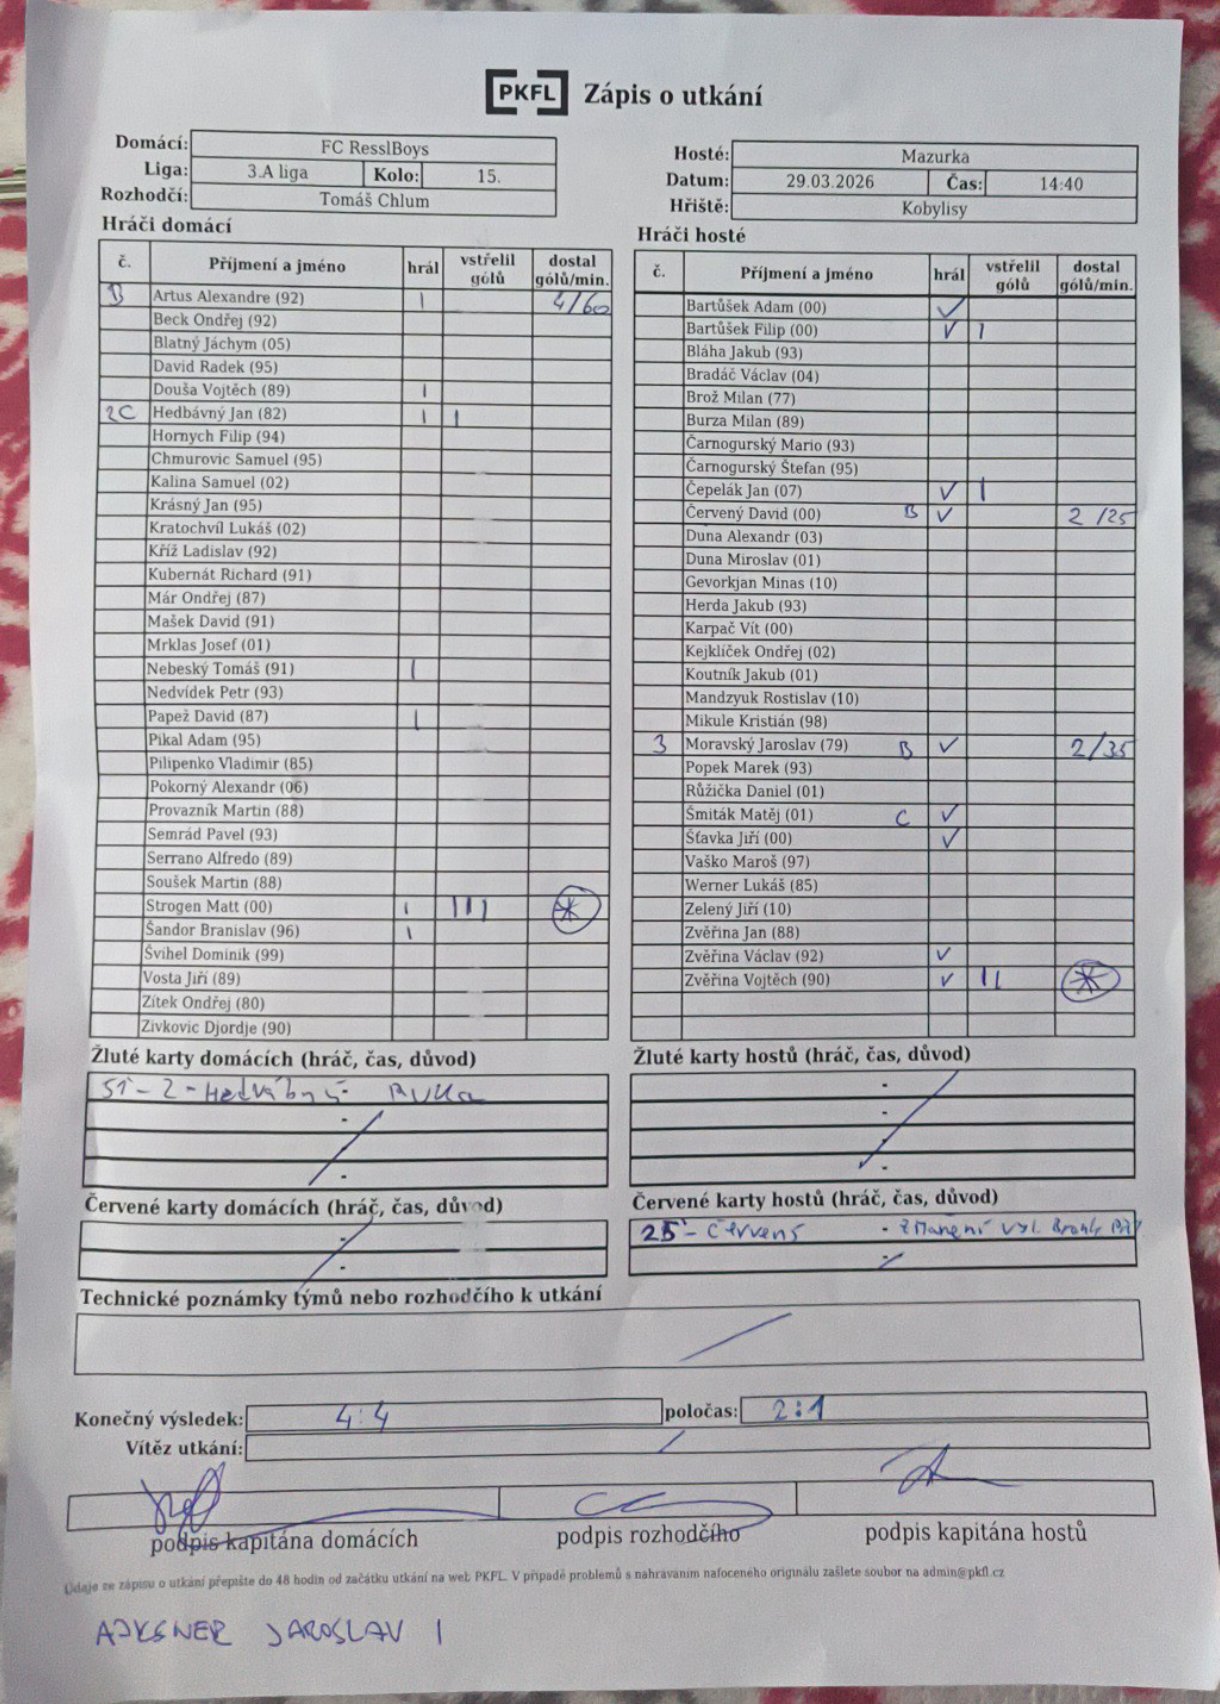 PKFL Zápis o utkání
Domácí: FC ResslBoys
Liga: 3.A liga Kolo: 15.
Rozhodčí: Tomáš Chlum
Hosté: Mazurka
Datum: 29.03.2026 Čas: 14:40
Hřiště: Kobylisy
Hráči domácí
č. Příjmení a jméno hrál vstřelil gólů dostal gólů/min.
B Artus Alexandre (92) I 4/60
Beck Ondřej (92)
Blatný Jáchym (05)
David Radek (95)
Douša Vojtěch (89) I
2C Hedbávný Jan (82) I I
Hornych Filip (94)
Chmurovic Samuel (95)
Kalina Samuel (02)
Krásný Jan (95)
Kratochvíl Lukáš (02)
Kříž Ladislav (92)
Kubernát Richard (91)
Már Ondřej (87)
Mašek David (91)
Mrklas Josef (01)
Nebeský Tomáš (91) I
Nedvídek Petr (93)
Papež David (87) I
Pikal Adam (95)
Pilipenko Vladimir (85)
Pokorný Alexandr (06)
Provazník Martin (88)
Semrád Pavel (93)
Serrano Alfredo (89)
Soušek Martin (88)
Strogen Matt (00) I III *
Šandor Branislav (96) I
Švihel Dominik (99)
Vosta Jiří (89)
Zítek Ondřej (80)
Zivkovic Djordje (90)
Hráči hosté
č. Příjmení a jméno hrál vstřelil gólů dostal gólů/min.
Bartůšek Adam (00) ✓
Bartůšek Filip (00) ✓ I
Bláha Jakub (93)
Bradáč Václav (04)
Brož Milan (77)
Burza Milan (89)
Čarnogurský Mario (93)
Čarnogurský Štefan (95)
Čepelák Jan (07) ✓ I
Červený David (00) B ✓ 2/25
Duna Alexandr (03)
Duna Miroslav (01)
Gevorkjan Minas (10)
Herda Jakub (93)
Karpač Vít (00)
Kejklíček Ondřej (02)
Koutník Jakub (01)
Mandzyuk Rostislav (10)
Mikule Kristián (98)
3 Moravský Jaroslav (79) B ✓ 2/35
Popek Marek (93)
Růžička Daniel (01)
Šmiták Matěj (01) C ✓
Šťavka Jiří (00) ✓
Vaško Maroš (97)
Werner Lukáš (85)
Zelený Jiří (10)
Zvěřina Jan (88)
Zvěřina Václav (92) ✓
Zvěřina Vojtěch (90) ✓ II *
Žluté karty domácích (hráč, čas, důvod)
51' - 2 - Hedvábný - RUKA
Žluté karty hostů (hráč, čas, důvod)
Červené karty domácích (hráč, čas, důvod)
Červené karty hostů (hráč, čas, důvod)
25' - Červený - zmaření
Technické poznámky týmů nebo rozhodčího k utkání
Konečný výsledek: 4:4 poločas: 2:1
Vítěz utkání:
podpis kapitána domácích podpis rozhodčího podpis kapitána hostů
Údaje ze zápisu o utkání přepište do 48 hodin od začátku utkání na web PKFL. V případě problémů s nahráváním nafoceného originálu zašlete soubor na admin@pkfl.cz
AJKSNER JAROSLAV I